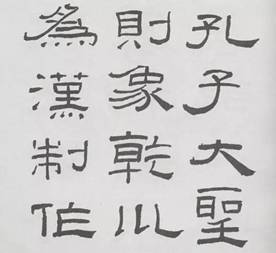 孔子大聖
則象乾川
爲漢制作